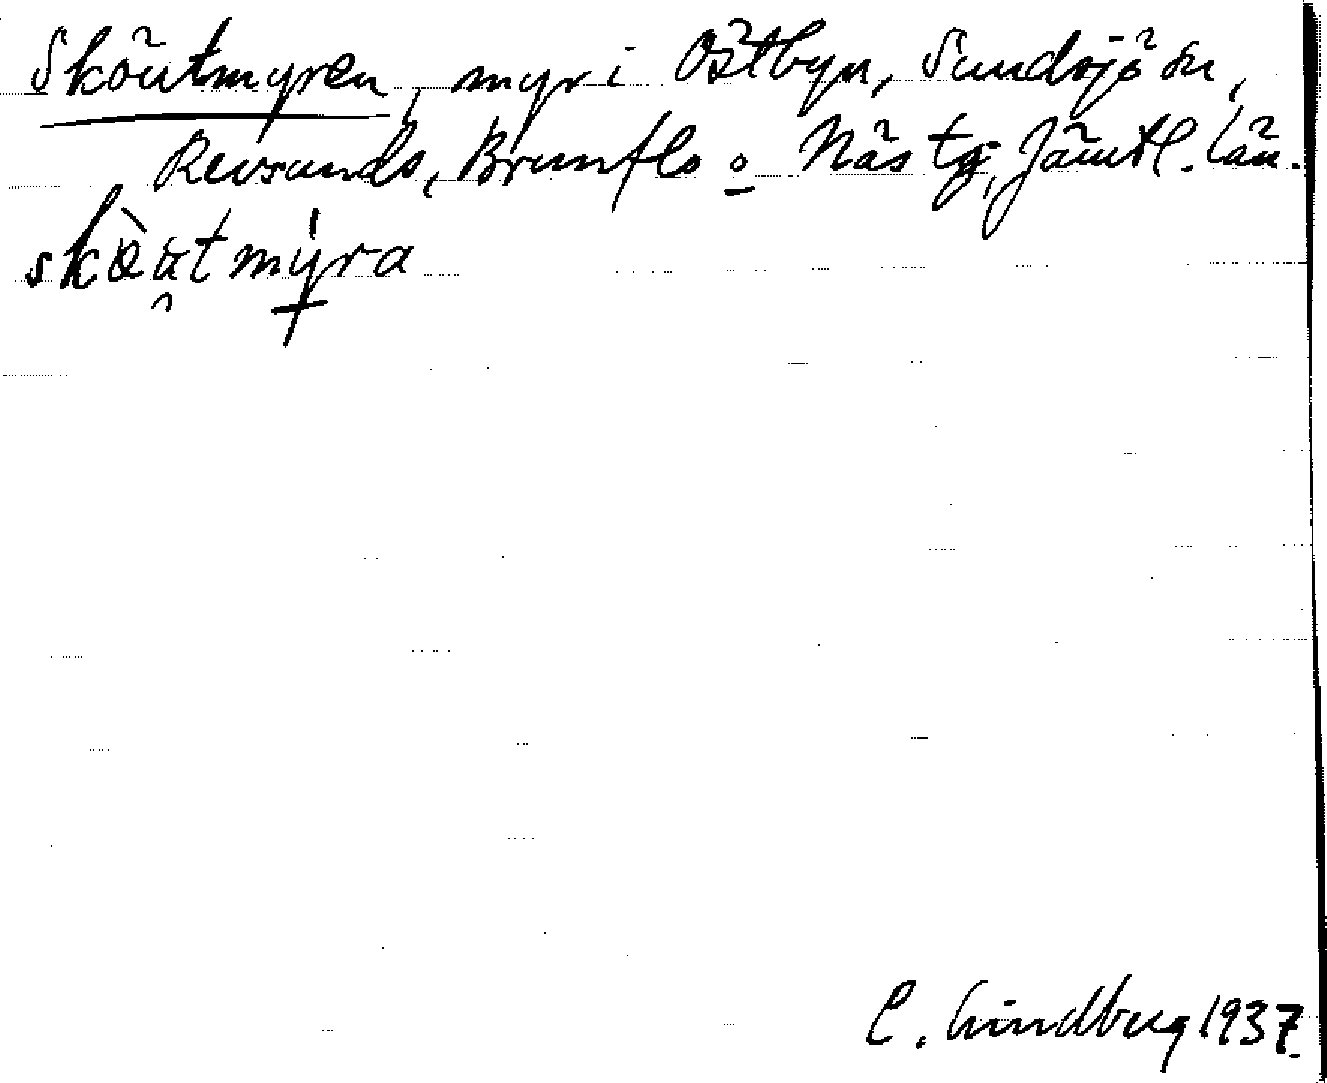 Sköutmyren, myr i Östbyn, Sundsjö sn,
Revsunds, Brunflo o Näs tg, Jämtl. län.
skæ̀u̯tmýra
C. Lindberg 1937.